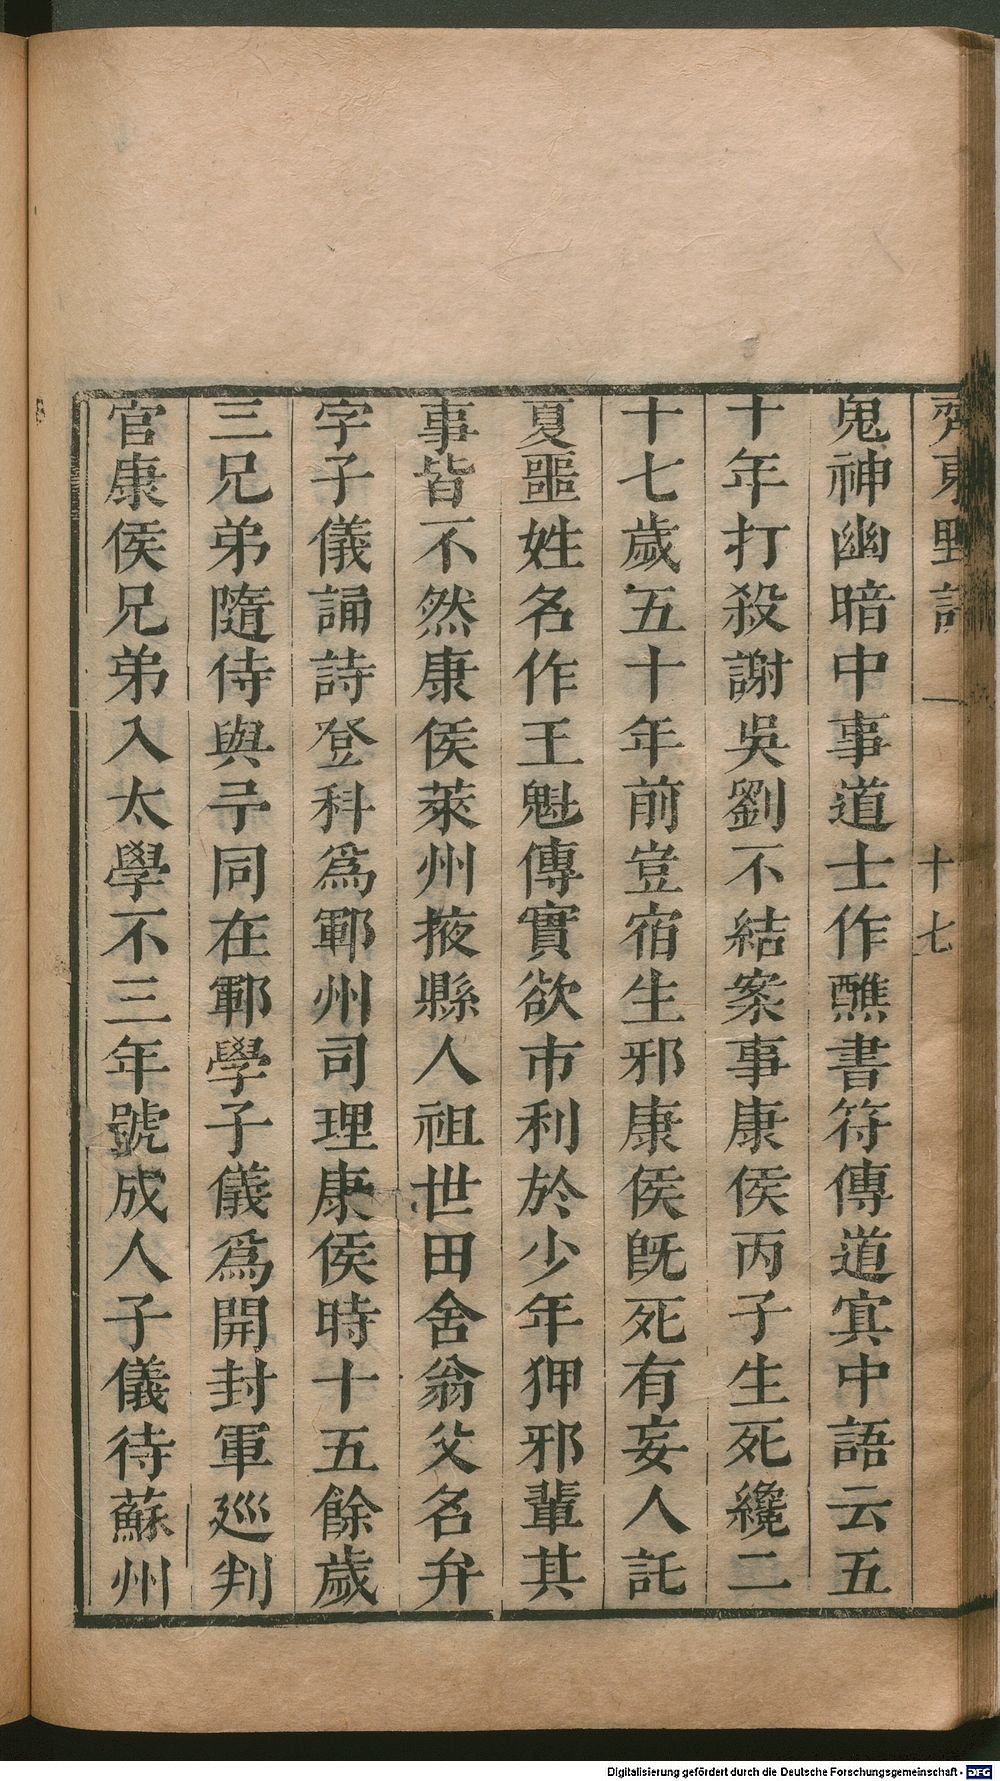 齊東野語 一 十七
鬼神幽暗中事道士作醮書符傳道㝠中語云五
十年打殺謝吳劉不結案事康侯丙子生死纔二
十七歲五十年前豈宿生邪康侯旣死有妄人託
夏噩姓名作王魁傳實欲市利於少年狎邪輩其
事皆不然康侯萊州掖縣人祖世田舍翁父名弁
字子儀誦詩登科爲鄆州司理康侯時十五餘歲
三兄弟隨侍與予同在鄆學子儀爲開封軍巡判
官康侯兄弟入太學不三年號成人子儀待蘇州
Digitalisierung gefördert durch die Deutsche Forschungsgemeinschaft - DFG